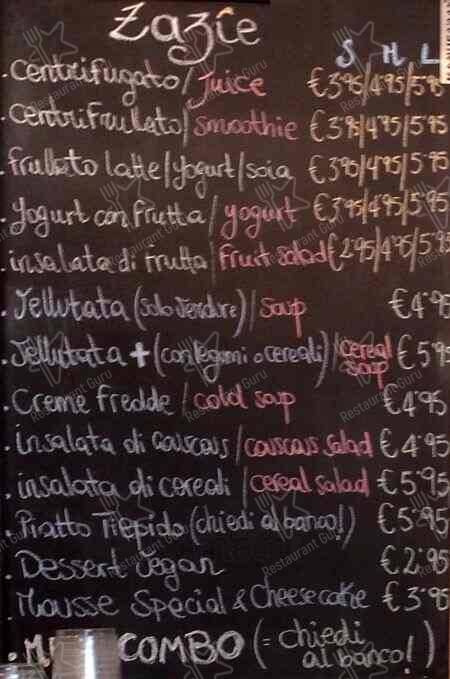 Zazie
S M L
. Centrifugato/juice €3.95/4.95/5.95
. Centrifrullato/smoothie €3.95/4.95/5.95
. frullato latte/yogurt/soia €3.95/4.95/5.95
. Yogurt con frutta/yogurt €3.95/4.95/5.95
. insalata di frutta/fruit salad €2.95/4.95/5.95
. Vellutata (solo verdure)/soup €4.95
. Vellutata + (con legumi o cereali)/cereal soup €5.95
. Creme fredde/cold soup €4.95
. insalata di couscous/couscous salad €4.95
. insalata di cereali/cereal salad €5.95
. Piatto Tiepido (chiedi al banco!) €5.95
. Dessert vegan €2.95
. Mousse Special & Cheesecake €3.95
. COMBO (= chiedi al banco!)
Restaurant Guru